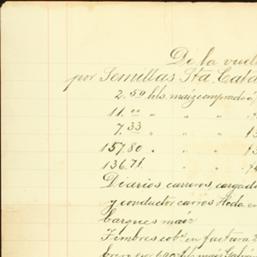 De la vuel
por Semillas Sta. Cata
2.50 hls. maíz comprado á
11.00 " "
7.33 " "
157.80 " "
136.71 " "
Diarios carreros cargado
y conductor carros Hda. en
barques maíz
Timbres cob. en factura